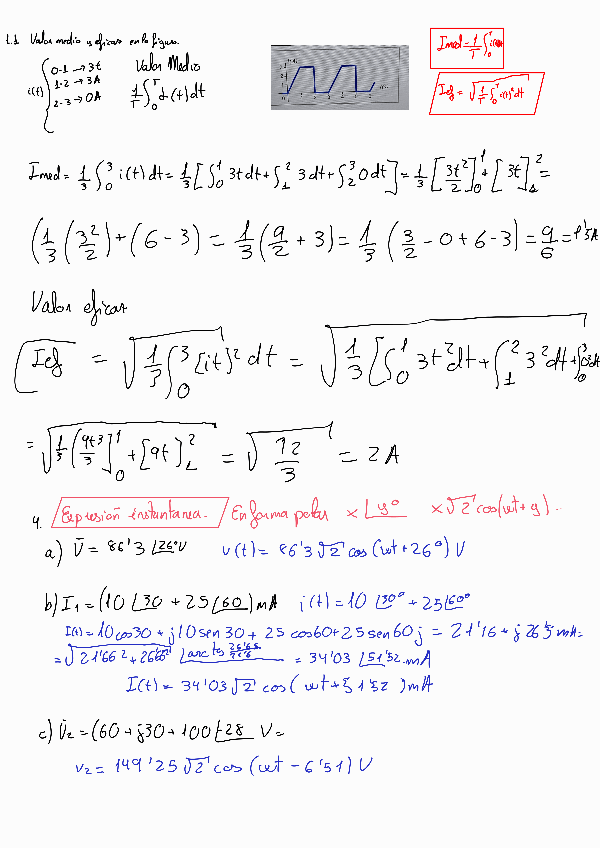 1.1. Valor medio y eficaz en la figura.
i(t) { 0-1 → 3t
1-2 → 3A
2-3 → 0A
Valor Medio
1/T ∫₀ᵀ i(t)dt
Imed = 1/T ∫₀ᵀ i(t)dt
Ief = √(1/T ∫₀ᵀ i(t)² dt)
Imed = 1/3 ∫₀³ i(t)dt = 1/3 [∫₀¹ 3t dt + ∫₁² 3dt + ∫₂³ 0dt] = 1/3 [3t²/2]₀¹ + [3t]₁² =
(1/3 (3²/2) + (6-3) = 1/3 (9/2 + 3) = 1/3 (3/2 - 0 + 6 - 3) = 9/6 = 1'5A
Valor eficaz
Ief = √(1/3 ∫₀³ [it]² dt = √(1/3 [∫₀¹ 3t² dt + ∫₁² 3² dt + ∫₀³ 0 dt
= √(1/3 (9t3/3]₀¹ + [9t]₁² = √(12/3) = 2A
4. Expresión instantanea. En forma polar x∠y° x√2 cos(wt+y)..
a) V̄ = 86'3∠26°V v(t) = 86'3√2 cos(wt+26°) V
b) I₁ = (10∠30 + 25∠60) mA i(t) = 10∠30° + 25∠60°
I(t) = 10 cos30 + j10 sen30 + 25 cos60 + 25 sen60 j = 21'16 + j26'5 mA =
= √(21'66² + 26'65²) ∠arctg 26'65/21'6 = 34'03∠51'52 mA
I(t) = 34'03√2 cos(wt+51'52) mA
c) V̄₂ = (60 + j30 + 100∠-28 V =
v₂ = 149'25√2 cos(wt - 6'51) V